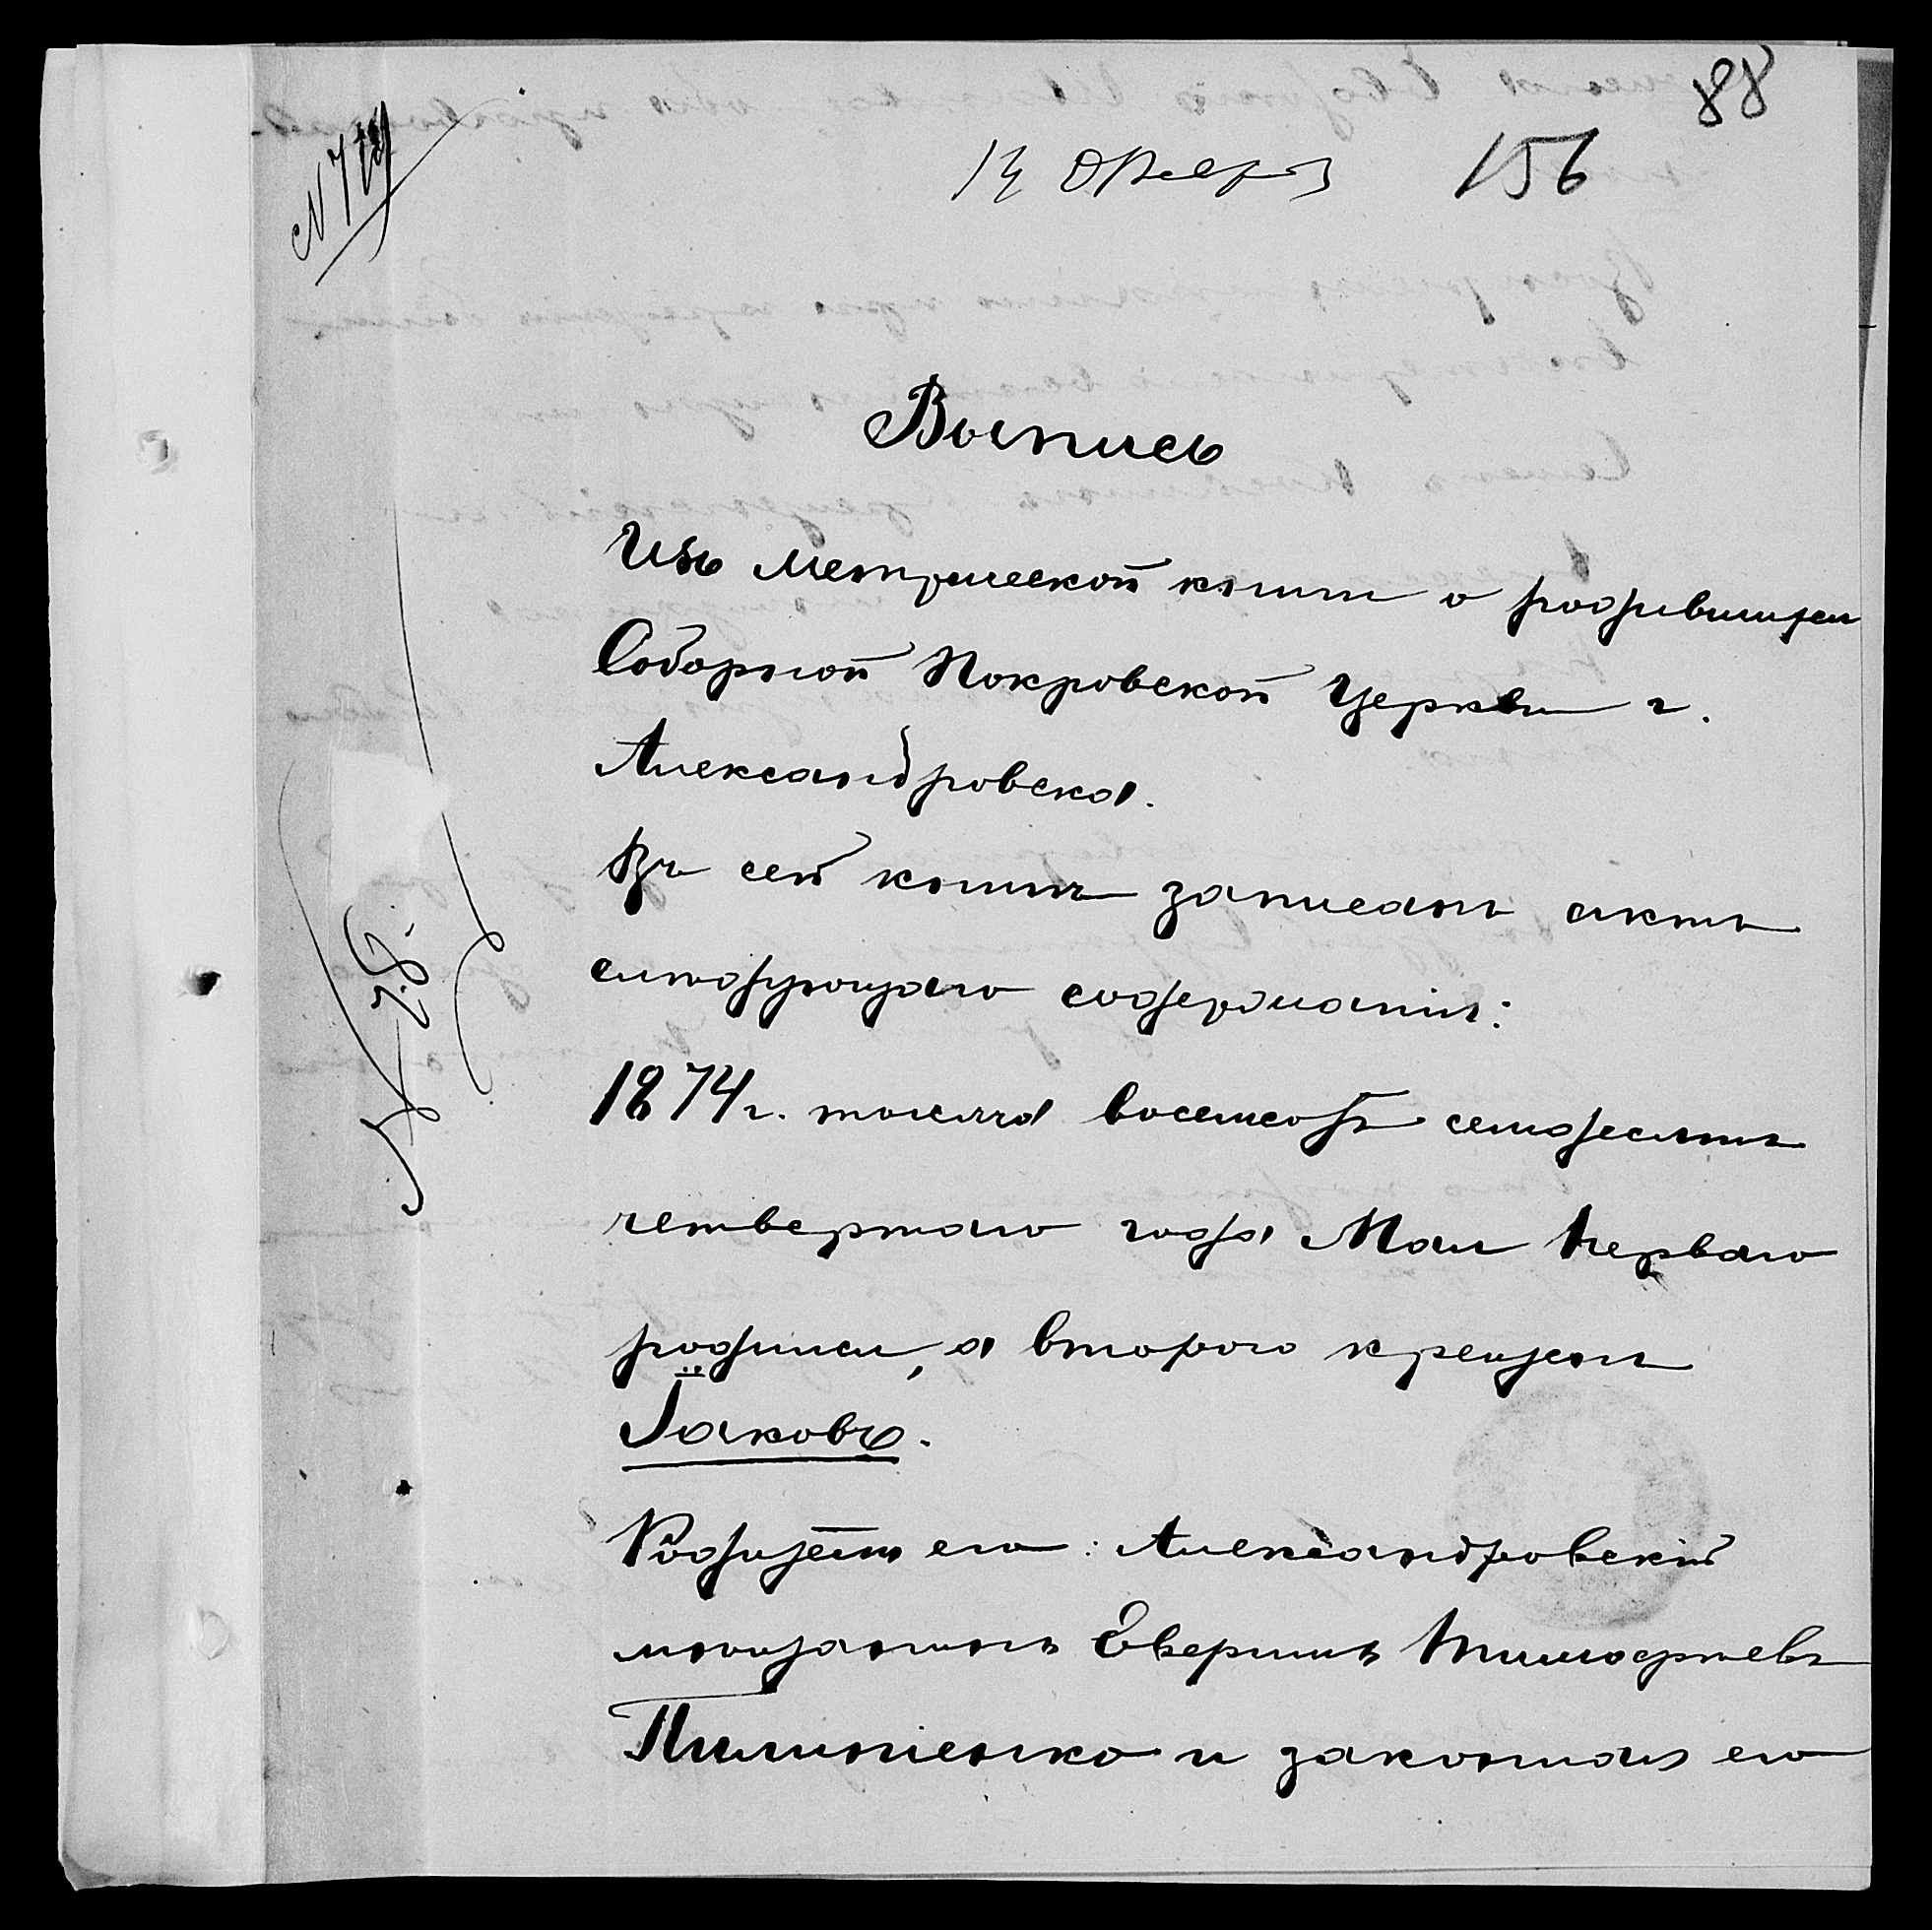 88
156
Выпись
Изъ метрической книги о родившихся
Соборной Покровской Церкви г.
Александровска.
Въ сей книгѣ записанъ актъ
слѣдующаго содержанія:
1874 г. тысяча восемсотъ семдесятъ
четвертаго года Мая Перваго
родился, а второго крещенъ
Іаковъ.
Родители его: Александровскій
мѣщанинъ Тимофѣевъ
Пилипенко и законная его